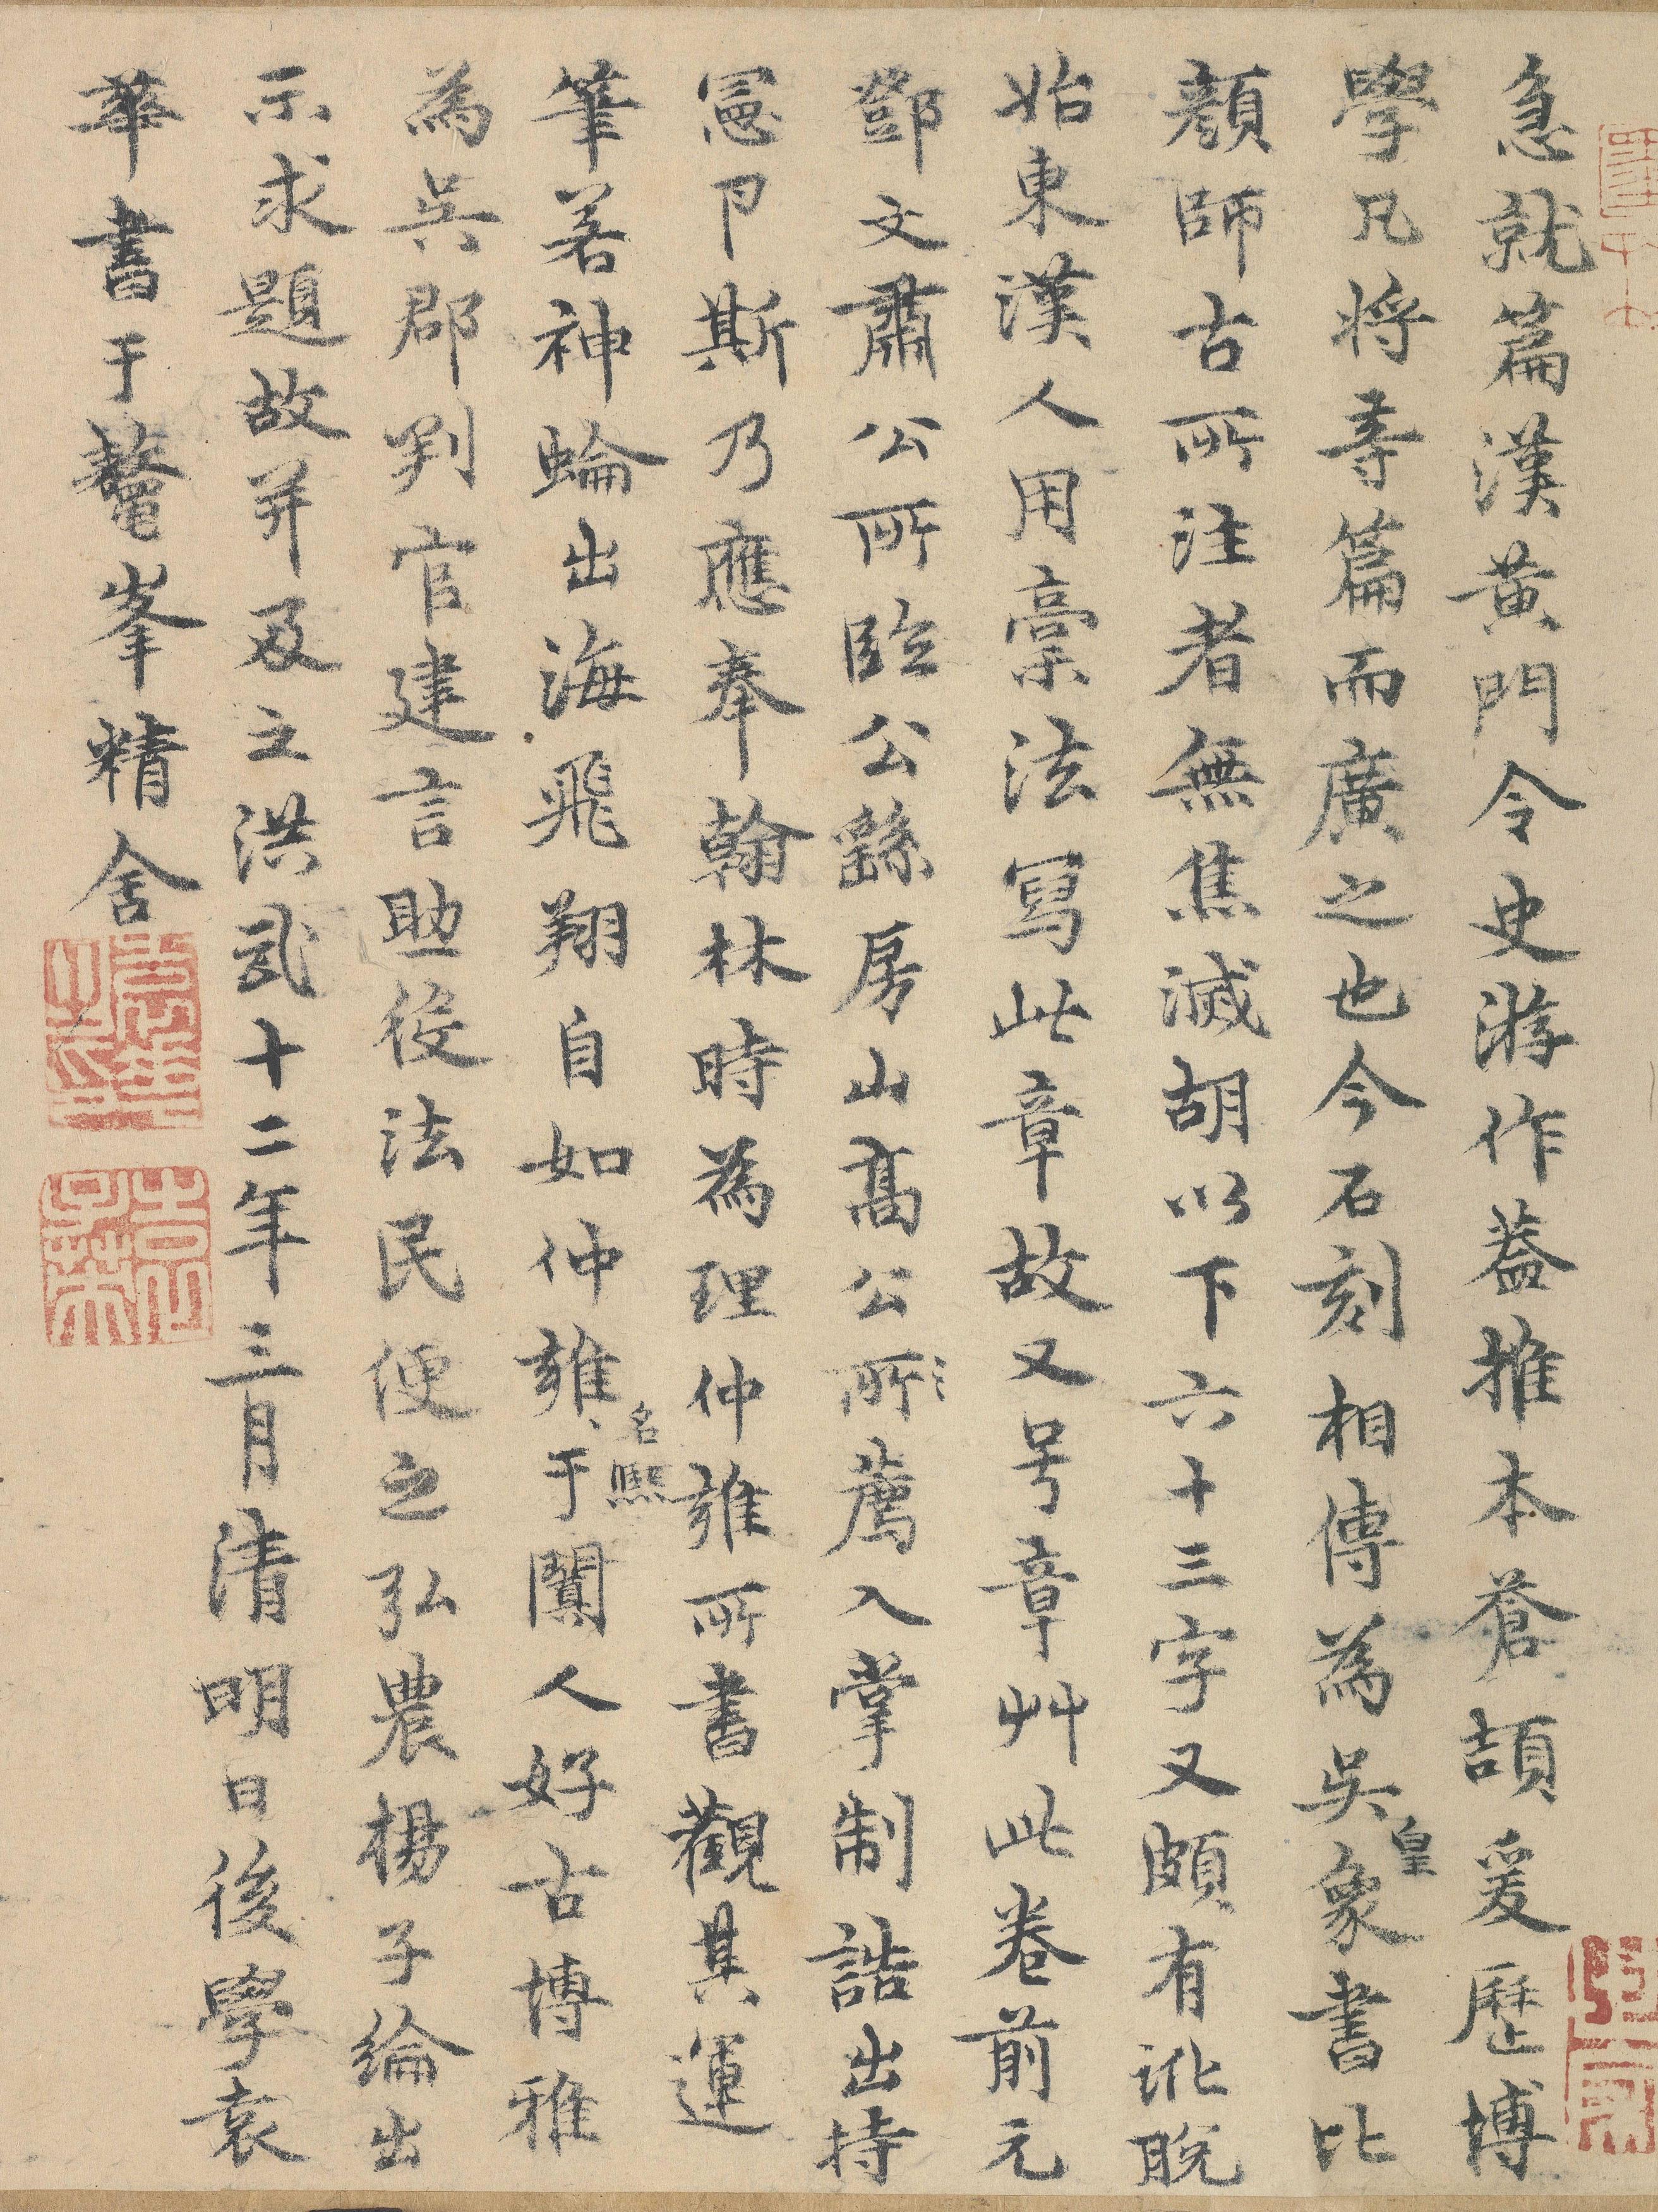 急就篇漢黃門令史游作蓋推本蒼頡爰歷博
學凡將等篇而廣之也今石刻相傳為吳皇象書比
顏師古所注者無焦滅胡以下六十三字又頗有訛脫
始東漢人用稾法寫此章故又号章艸此卷前元
鄧文肅公所臨公繇房山高公所薦入掌制誥出持
憲卩斯乃應奉翰林時為理仲雍所書觀其運
筆若神蜦出海飛翔自如仲雍名熙于闐人好古博雅
為吳郡判官建言助役法民便之弘農楊子綸出
示求題故并及之洪武十二年三月清明日後學袁
華書于鼇峯精舍